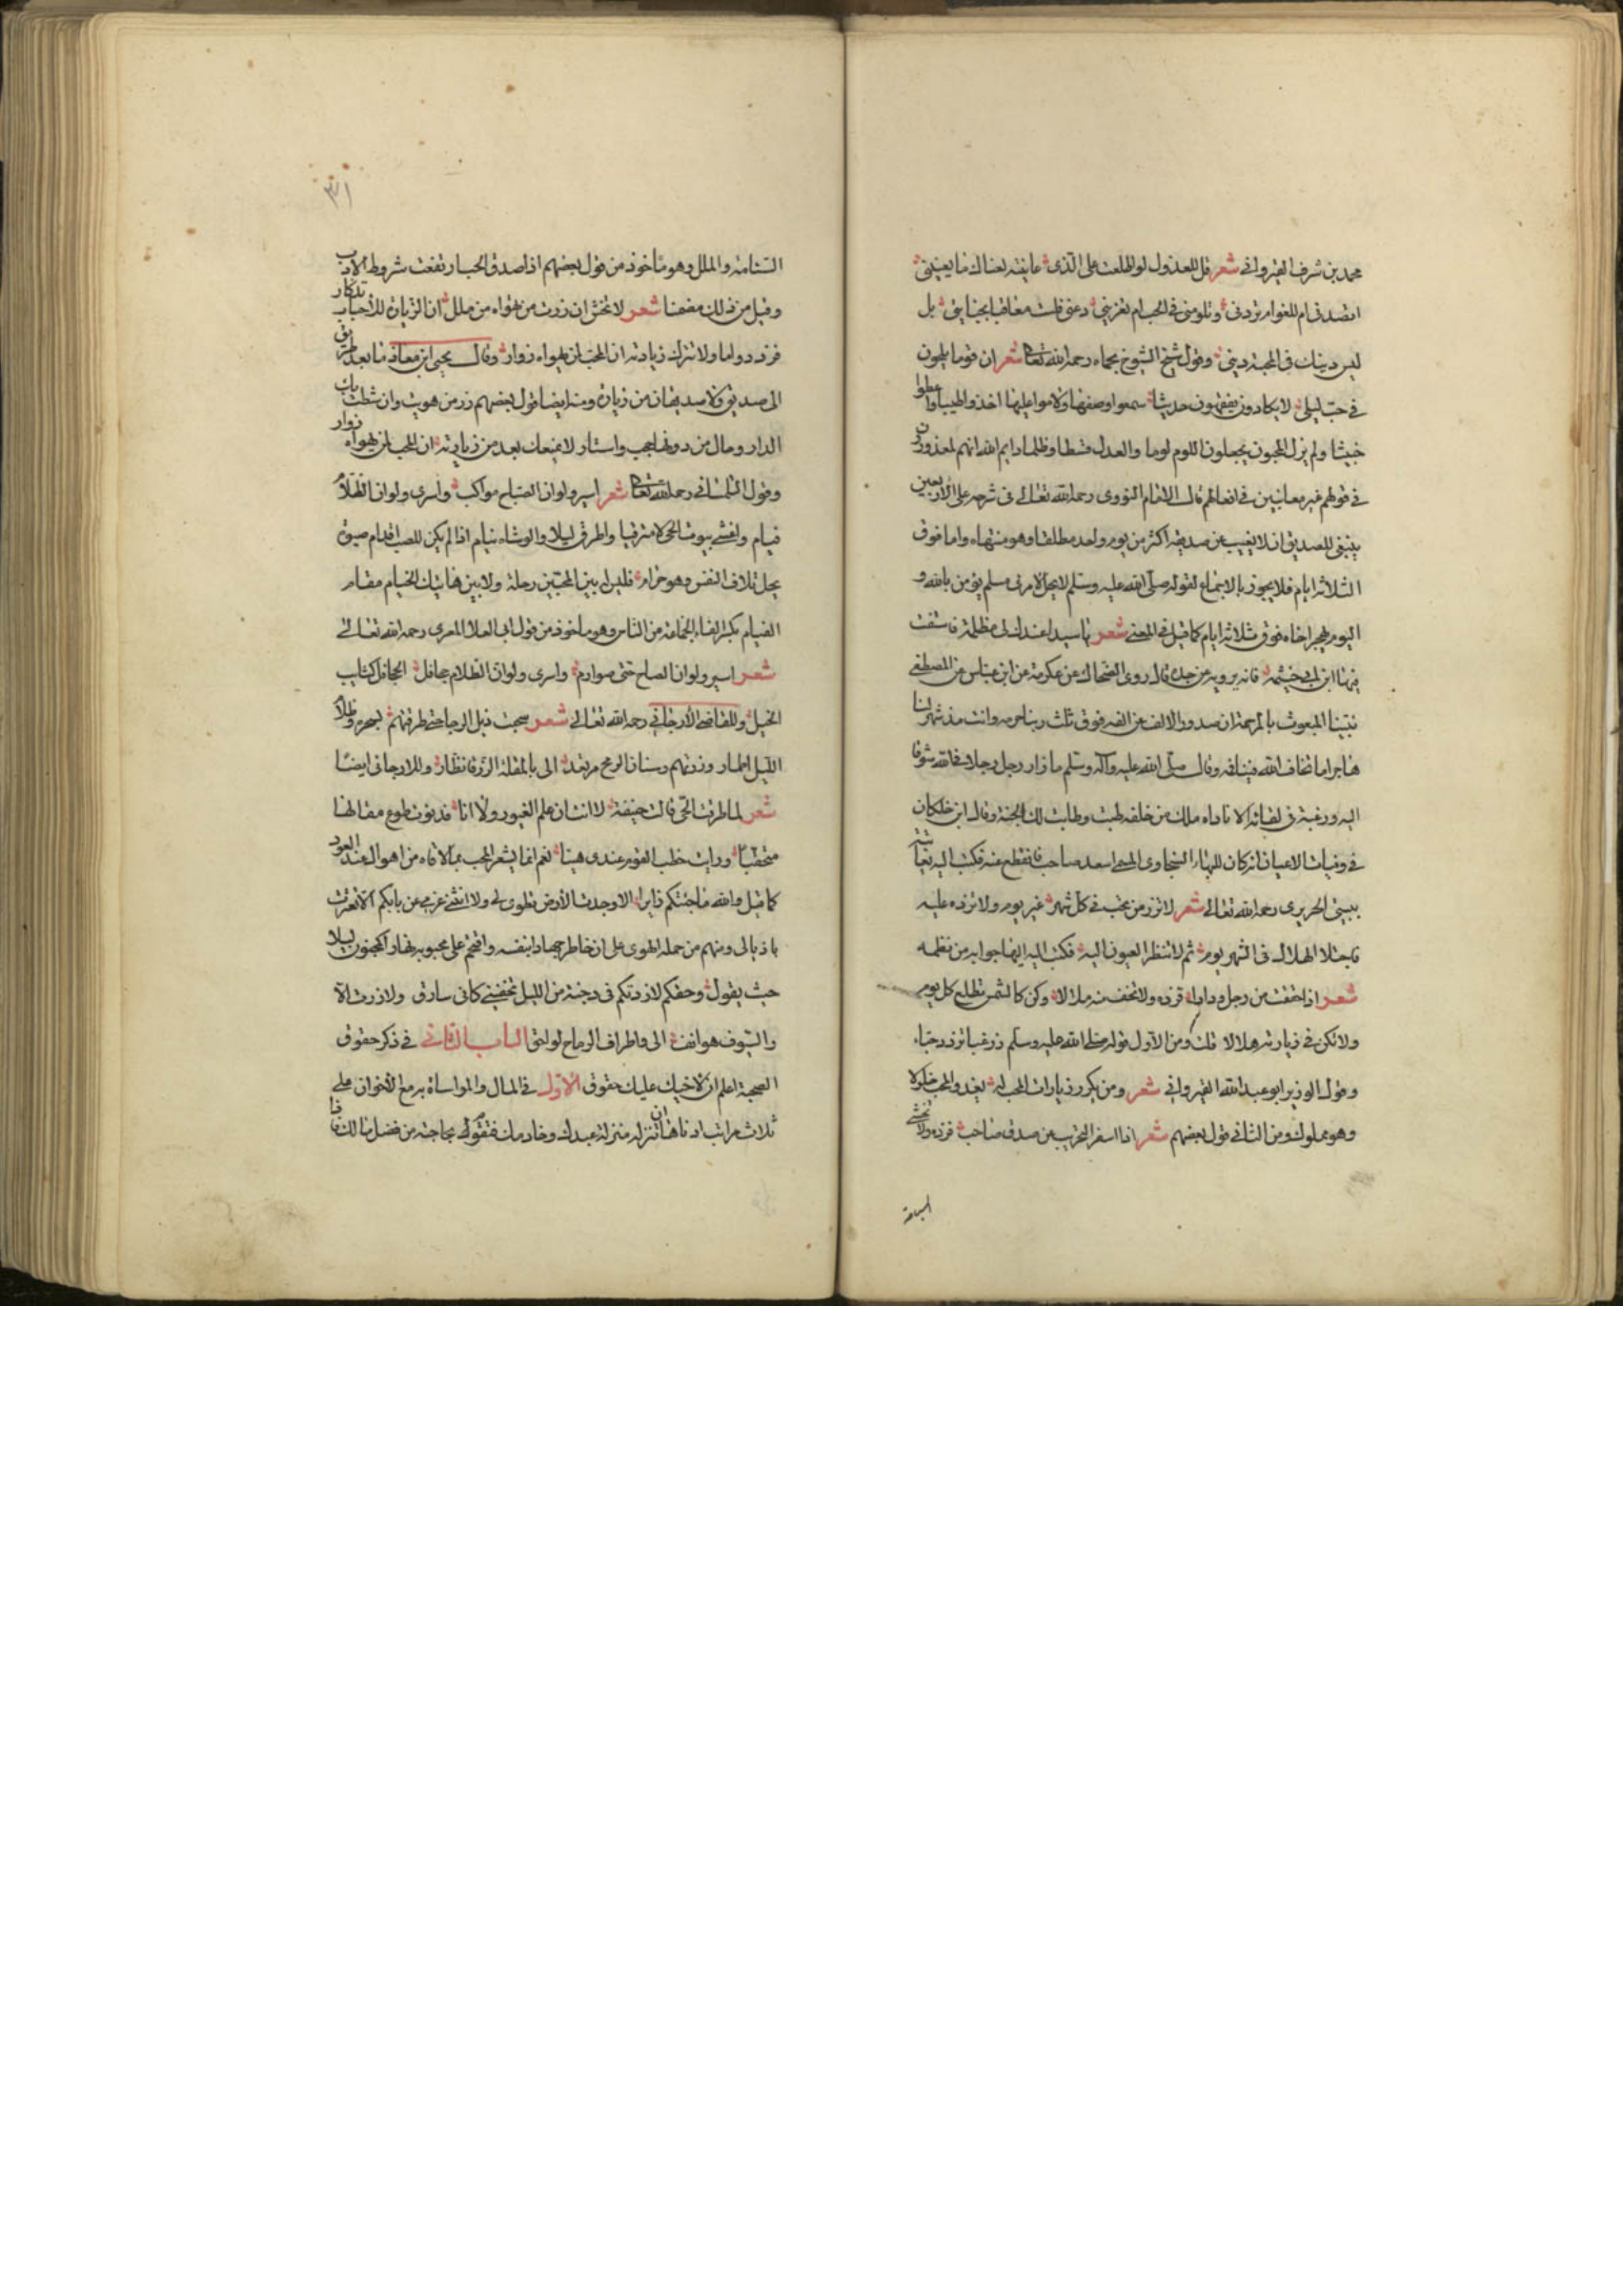 محمد بن شرف القيرواني شعر قل للعذول لو اطلعت على الذي عاينته لعناك ما يعنيني
اتصدني ام للغرام تردني وتلومني في الحب ام تغريني دعني فلست معاقبا بجنايتي بل
ليس دينك في المحبة ديني وقول شيخ الشيوخ بحماه رحمه الله تعالى شعر ان قوما يلحون
في حب ليلى لا يكادون يفقهون حديثا سمعوا وصفها ولاموا عليها اخذوا طيبا واعطوا
خبيثا ولم يزل المحبون يجعلون اللوم لوما والعدل قسطا وظلما وايم الله انهم لمعذورون
في قولهم غير معاتبين في افعالهم قال الامام النووي رحمه الله تعالى في شرحه على الاربعين
ينبغي للصديق ان لا يغيب عن صديقه اكثر من يوم واحد مطلقا وهو منتهاه واما فوق
الثلاثة ايام فلا يجوز بالاجماع لقوله صلى الله عليه وسلم لا يحل لامرئ مسلم يؤمن بالله و
اليوم يهجر اخاه فوق ثلاثة ايام كما قيل في المعنى شعر يا سيدا عندك لي مظلمة فاستفت
فيها ابن ابي خيثمه فانه يرويه عن جده قال روى الضحاك عن عكرمة عن ابن عباس عن المصطفى
نبينا المبعوث بالمرحمة ان صدود الالف عن الفه فوق ثلث ربنا حرمه وانت مذ شهر لنا
هاجر اما تخاف الله فينا فه وقال صلى الله عليه وآله وسلم ما زار رجل رجلا في الله شوقا
اليه ورغبة في لقائه الا ناداه ملك من خلفه طبت وطابت لك الجنة وقال ابن خلكان
في وفيات الاعيان انه كان للبهاء السنجاوي المسمى اسعد صاحب فانقطع عنه فكتب اليه يعاتبه
ببيتي الحريري رحمه الله تعالى شعر لا تزر من تحب في كل شهر غير يوم ولا تزده عليه
فاجتلاء الهلال في الشهر يوم ثم لا تنظر العيون اليه فكتب اليه البها جوابه من نظمه
شعر اذا حققت من رجل ودادا فزره ولا تخف منه ملالا وكن كالشمس تطلع كل يوم
ولا تكن في زيارته هلالا قلت ومن الاول قوله صلى الله عليه وسلم زر غبا تزدد حبا
وقول الوزير ابو عبد الله القيرواني شعر ومن يكرر زيارات المحب له يغدو المحب
وهو مملوك ومن الثاني قول بعضهم شعر اذا اسفر التجريب عن صدق صاحب فزره ولا تخشى
السامة
٣٧١
السآمة والملل وهو مأخوذ من قول بعضهم اذا صدق الحب ارتفعت شروط الادب
وقيل من ذلك مضمنا شعر لا تخش ان زرت من تهواه من ملل ان الزيارة للاحباب تذكار
فزر دواما ولا تترك زيارته ان المحب لمن يهواه زوار وقال يحيى ابن معاذ ما بعد طريق
الى صديق ولا صديقان من زيارة ومنه ايضا قول بعضهم زر من هويت وان شطت بك
الدار وحال من دونه حجب واستار لا يمنعك بعد من زيارته ان المحب لمن يهواه زوار
وقول التلمساني رحمه الله تعالى شعر اسير ولو ان الصباح مواكب واسرى ولو ان الظلام
قيام واغشى بيوت الحي لا مترقبا واطرق ليلا والوشاة نيام اذا لم يكن للصب اقدام صبوة
يحل تلاف النفس وهو حرام فليس له بين المحبين رحلة ولا بين هاتيك الخيام مقام
الفيام بكسر الفاء الجماعة من الناس وهو مأخوذ من قول ابي العلا المعري رحمه الله تعالى
شعر اسير ولو ان الصباح صوارم واسرى ولو ان الظلام جحافل الجحافل كتايب
الخيل وللقاضي الارجاني رحمه الله تعالى شعر سحبت ذيل الرجا حتى طرقتهم
ولزرتهم وسنان الرمح الى بالمقلة الزرقا نظار وللارجاني ايضا
شعر لما طرقت الحي قالت خيفة لا انت ان علم الغيور ولا انا فدنوت طوع مقالها
متخفيا ورايت خطب القوم عندي هينا نعم انما يشعر المحب بما لاقاه من اهوال عند العود
كما قيل والله ما جئتكم زايرا الا وجدت الارض تطوى لي ولا انثنى عزمي عن بابكم الا تعثرت
باذيالي ومنهم من حمله الهوى على ان خاطر جهارا بنفسه واقتحم على محبوبه نهارا كمجنون ليلى
حيث يقول وحقكم لا زرتكم في دجنة من الليل تخفيني كاني سارق ولا زرت الا
والسيوف هواتف الي واطراف الرماح لواحق الباب الثاني في ذكر حقوق
الصحبة اعلم ان لاخيك عليك حقوق الاول في المال والمواساة به مع الاخوان على
ثلاث مراتب ادناها ان تنزله منزلة عبدك وخادمك فتقوم له بحاجته من فضل مالك